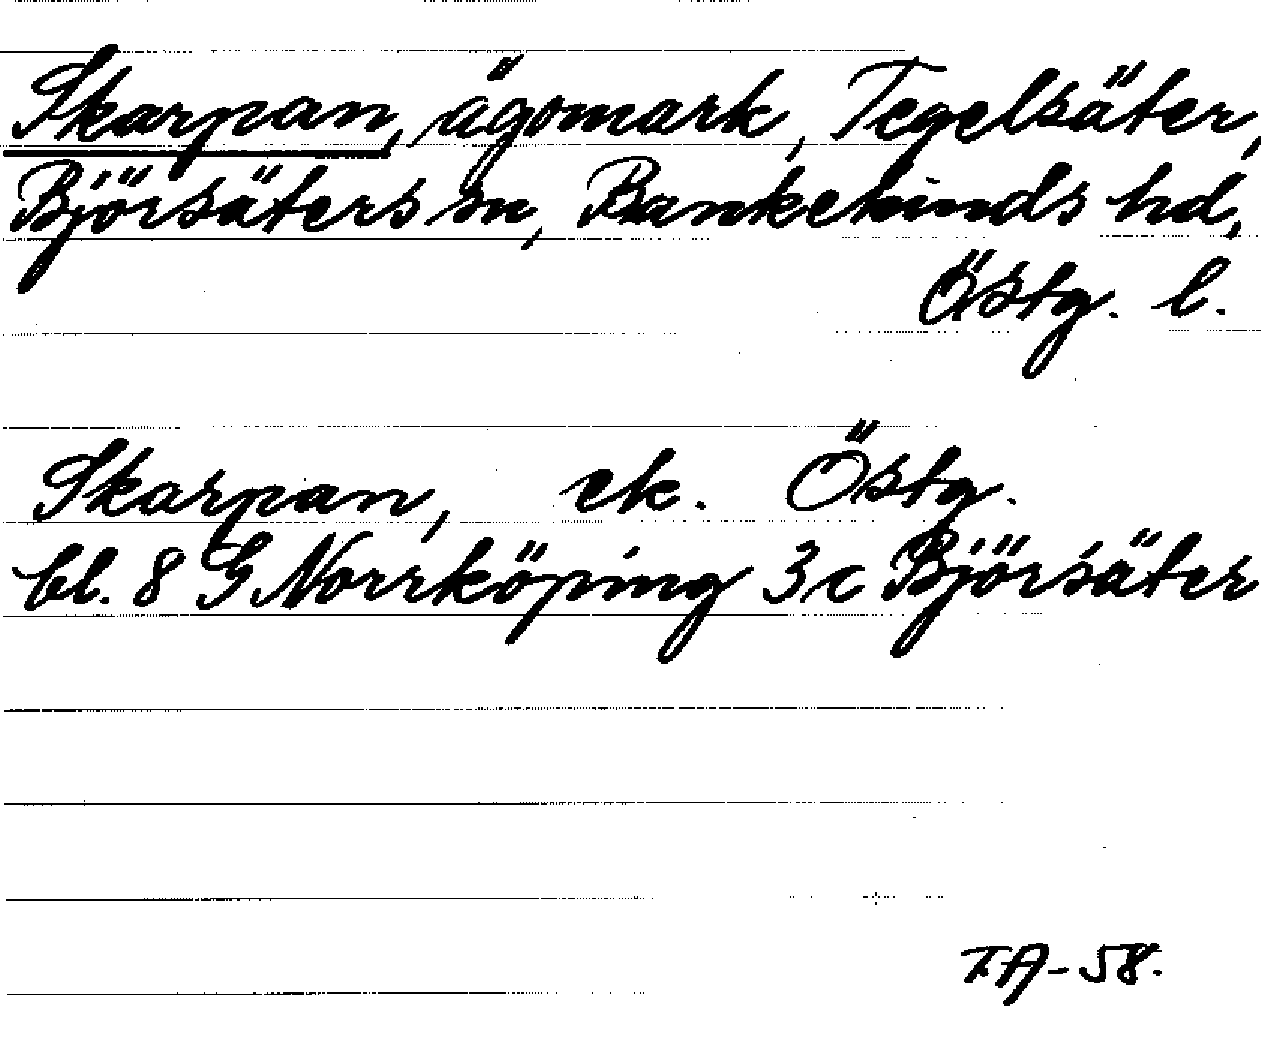 Skarpan, ägomark, Tegelsäter,
Björsäters sn, Bankekinds hd,
Östg. l.
Skarpan, ek. Östg.
bl. 8 G Norrköping 3c Björsäter
TA-58.